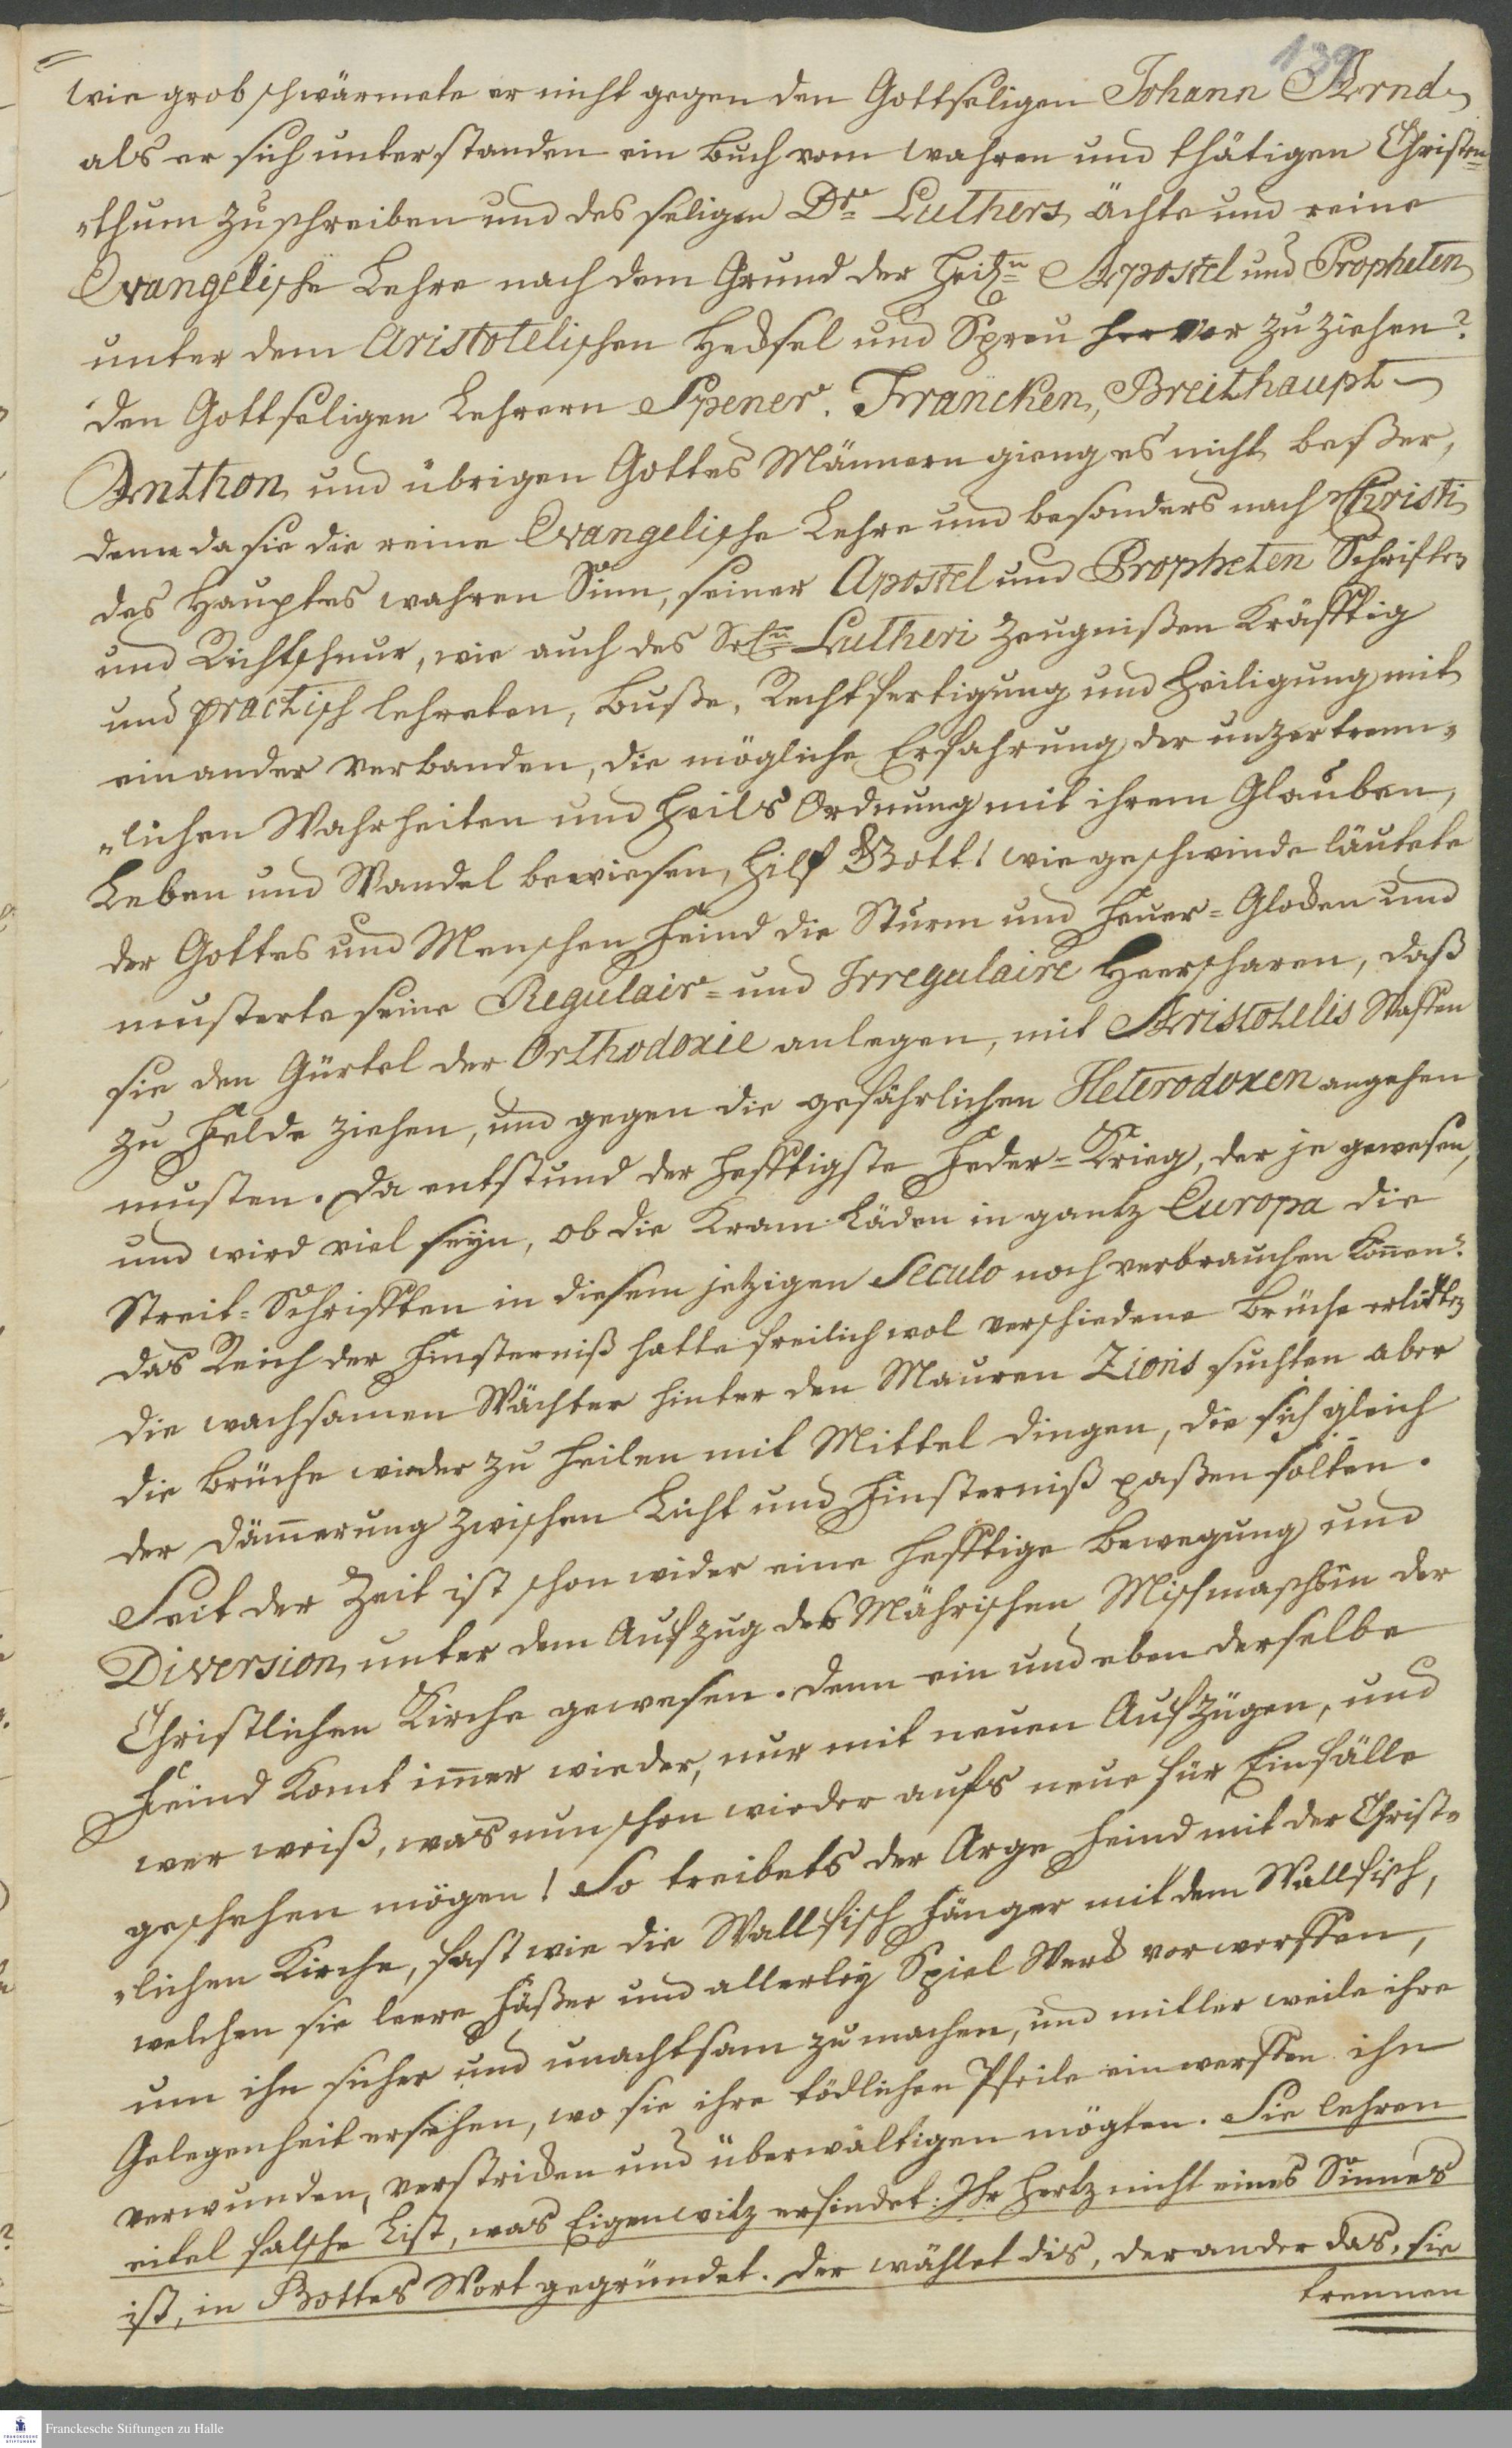 139
wie grob schwärmete er nicht gegen den Gottseligen Johann Arnd,
als er sich unterstanden ein Buch vom wahren und thätigen Christen=
„thum zu schreiben und des seligen Dr Luthers ächte und reine
Evangelische Lehre nach dem Grund der Heilgn Apostel und Propheten
unter dem Aristotelischen Hecksel und Spreu hervor zu ziehen?
den Gottseligen Lehrern Spener, Francken, Breithaupt
Anthon und übrigen Gottes Männern gieng es nicht beßer,
denn da sie die reine Evangelische Lehre und besonders nach Christi
des Hauptes wahren Sinn, seiner Apostel und Propheten Schriften
und Richtschnur, wie auch des Seln Lutheri Zeugnißen kräfftig
und practisch lehreten, Buße, Rechtfertigung und Heiligung mit
einander verbanden, die mögliche Erfahrung der unzertrenn„
„lichen Wahrheiten und Heils Ordnung mit ihrem Glauben,
Leben und Wandel bewiesen, hilf Gott! wie geschwinde läutete
der Gottes und Menschen Feind die Sturm und Feuer=Glocken und
musterte seine Regulair= und Irregulaire Heerscharen, daß
sie den Gürtel der Orthodoxie anlegen, mit Aristotelis Waffen
zu Felde ziehen, und gegen die gefährlichen Heterodoxen angehen
musten. Da entstund der hefftigste Feder=Krieg, der je gewesen,
und wird viel seyn, ob die Kram Läden in gantz Europa die
Streit=Schrifften in diesem jetzigen Seculo noch verbrauchen könen?
Das Reich der Finsterniß hatte freilich wol verschiedene Brüche erlitten
die wachsamen Wächter hinter den Mauren Zions suchten aber
die Brüche wieder zu heilen mit Mittel dingen, die sich gleich
der Dämerung zwischen Licht und Finsterniß paßen solten.
Seit der Zeit ist schon wider eine hefftige Bewegung und
Diversion unter dem Aufzug des Mährischen Mischmasch in der
Christlichen Kirche gewesen. Denn ein und eben derselbe
Feind komt imer wieder, nur mit neuen Aufzügen, und
wer weiß, was nun schon wieder aufs neue für Einfälle
geschehen mögen! So treibets der Arge Feind mit der Christ„
„lichen Kirche, fast wie die Wallfisch Fänger mit dem Wallfisch,
welchen sie leere Fäßer und allerley Spiel Werck vorwerffen,
um ihn sicher und unachtsam zu machen, und mitler weile ihre
Gelegenheit ersehen, wo sie ihre tödlichen Pfeile einwerffen ihn
verwunden, verstricken und überwältigen mögten. Sie lehren
eitel falsche List, was Eigenwitz erfindet: Ihr Hertz nicht eines Sinnes
ist, in Gottes Wort gegründet. Der wählet dis, der ander das, sie
trennen
Franckesche Stiftungen zu Halle
FRANCKESCHE
STIFTUNGEN